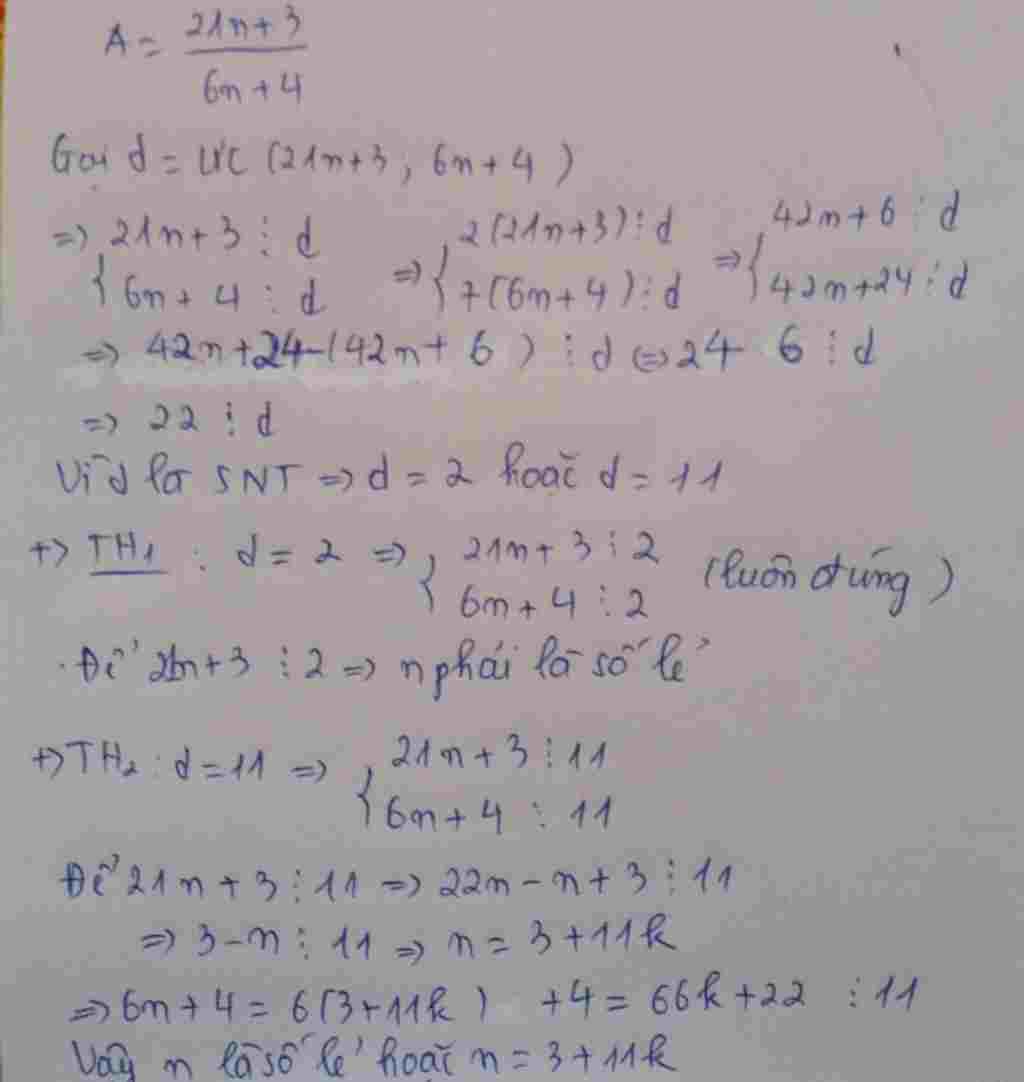 A = 21n+3 / 6n+4
Gọi d = ƯC (21n+3, 6n+4)
=> { 21n+3 ⋮ d 6n+4 ⋮ d => { 2(21n+3) ⋮ d 7(6n+4) ⋮ d => { 42n+6 ⋮ d 42n+24 ⋮ d
=> 42n+24-(42n+6) ⋮ d <=> 24 6 ⋮ d
=> 22 ⋮ d
Vì d là SNT => d = 2 hoặc d = 11
+> TH1 : d = 2 => { 21n+3 ⋮ 2 6n+4 ⋮ 2 (luôn đúng)
. Để 21n+3 ⋮ 2 => n phải là số lẻ
+> TH2 : d = 11 => { 21n+3 ⋮ 11 6n+4 ⋮ 11
Để 21n+3 ⋮ 11 => 22n-n+3 ⋮ 11
=> 3-n ⋮ 11 => n = 3+11k
=> 6n+4 = 6(3+11k) +4 = 66k+22 ⋮ 11
Vậy n là số lẻ hoặc n = 3+11k